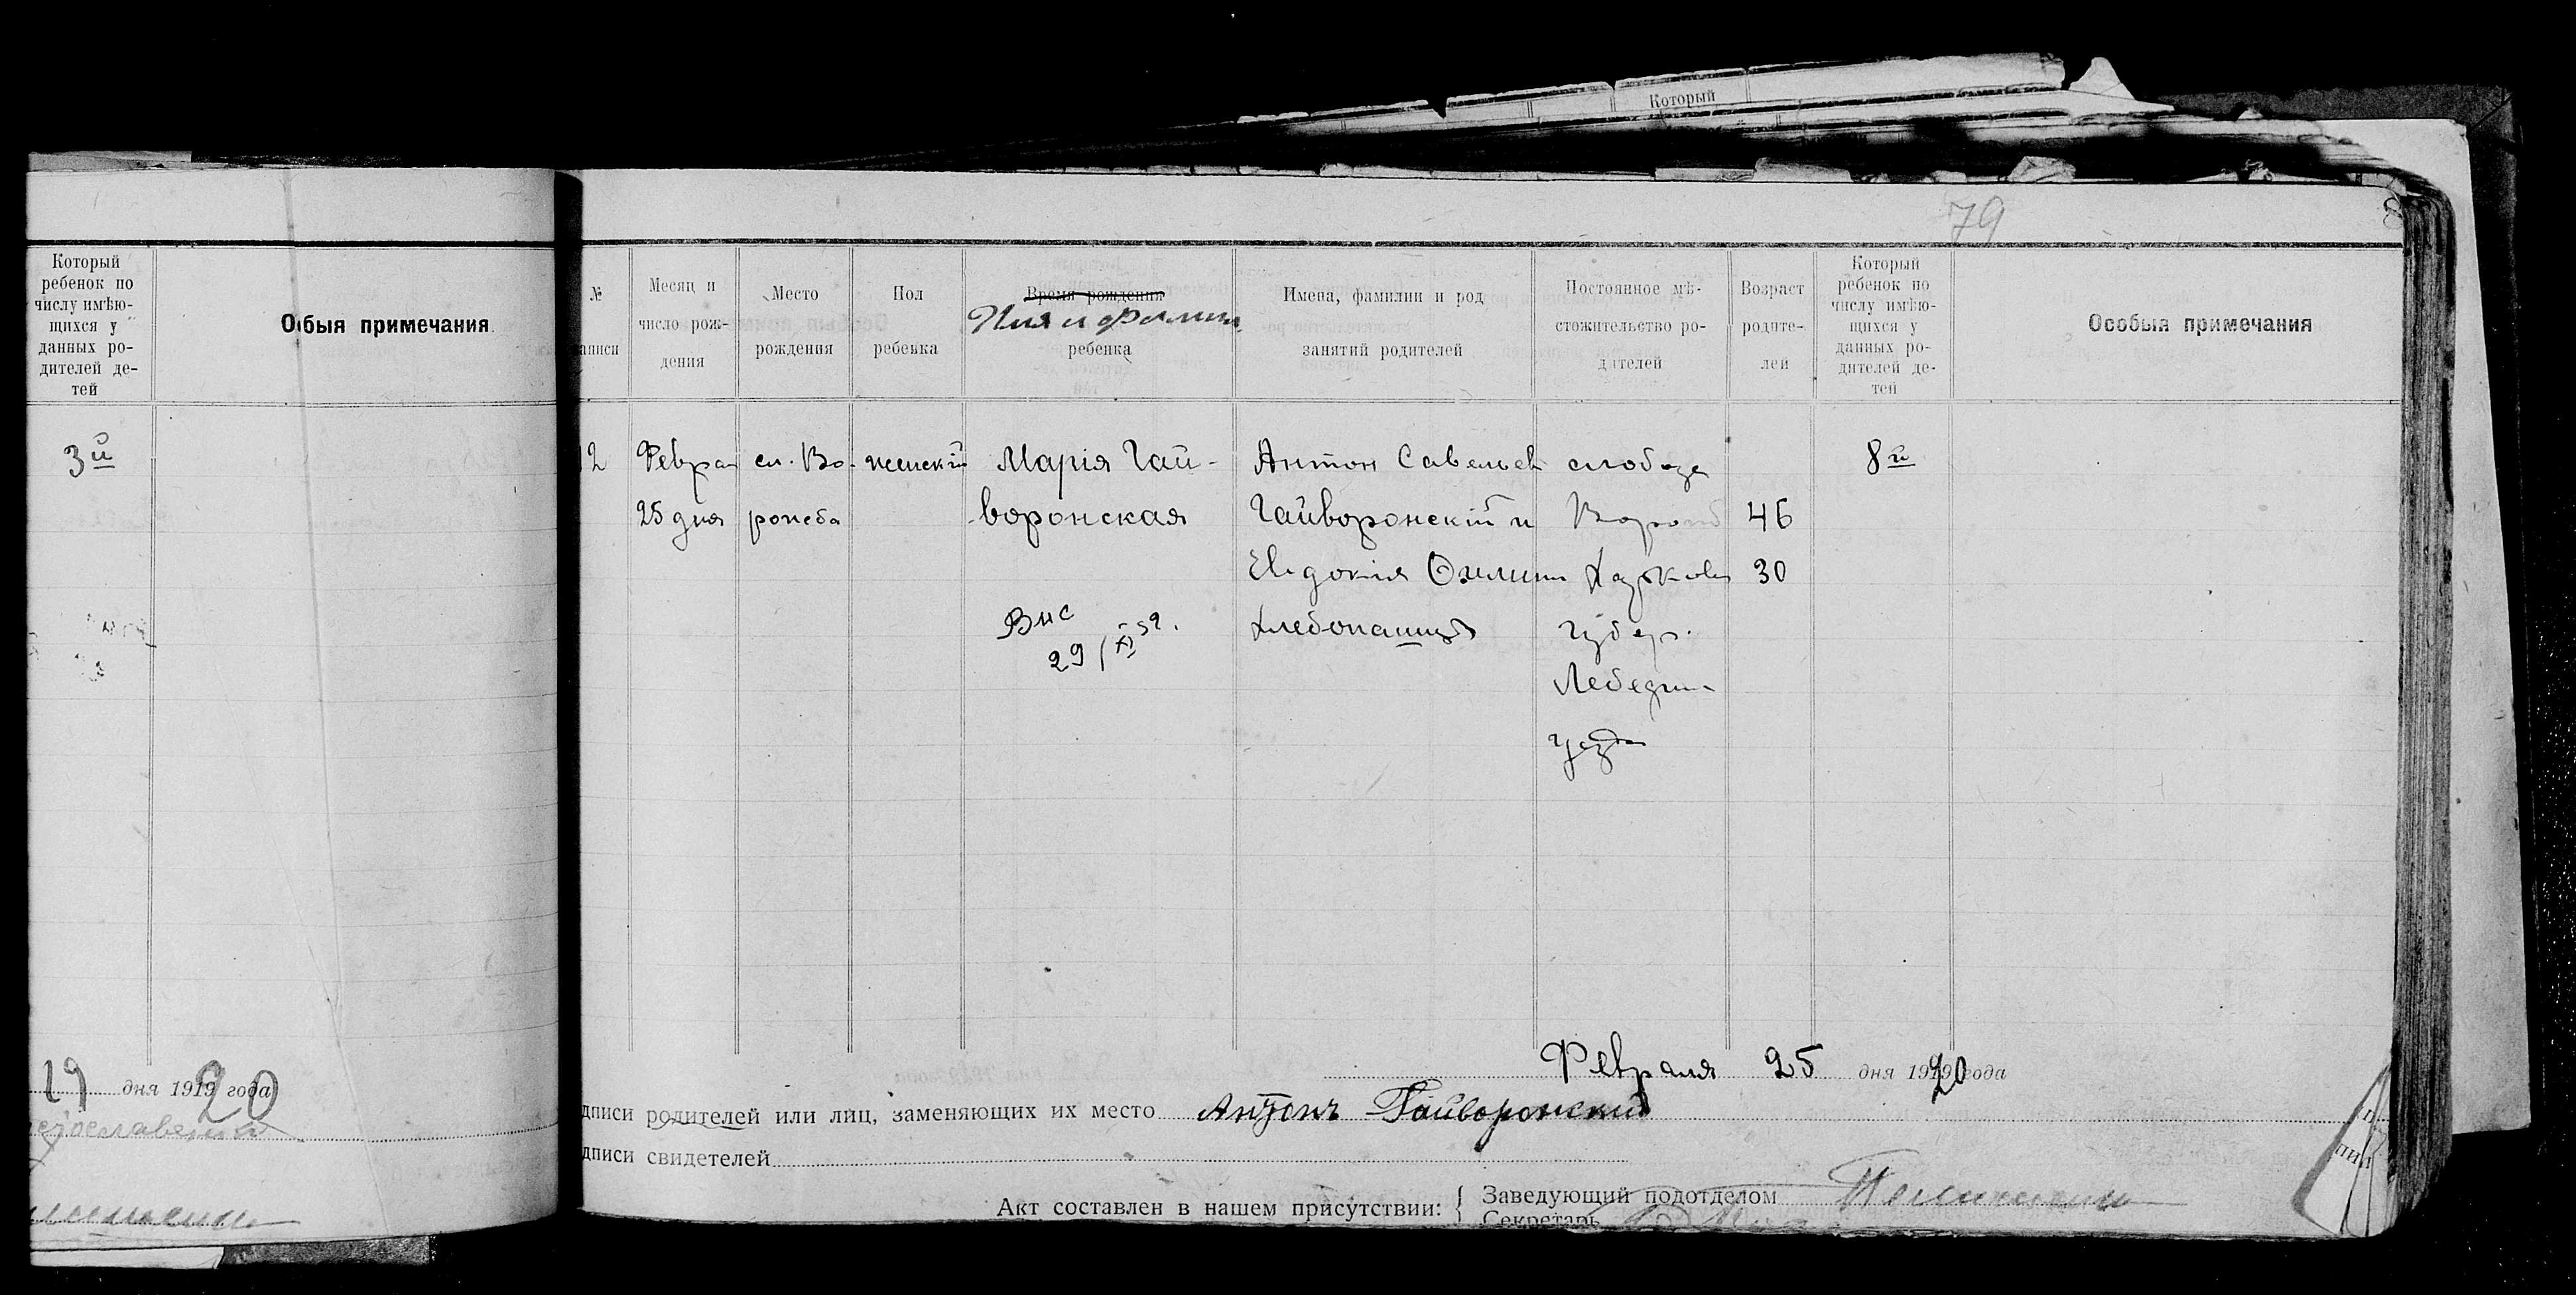 Который
79
Который
ребенок по
числу имѣю-
щихся у
данных ро-
дителей де-
тей
Обыя примечания
3й
19 дня 1919 20 года
№
аписи
Месяц и
число рож-
дения
Место
рождения
Пол
ребенка
Время рождения
Имя и фамил.
ребенка
Имена, фамилии и род
занятий родителей
Постоянное мѣ-
стожительство ро-
дителей
Возраст
родите-
лей
Который
ребенок по
числу имѣю-
щихся у
данных ро-
дителей де-
тей
Особыя примечания
12
Феврал
25 дня
сл. Во-
ронеба
женскій
Марія Гай-
воронская
Антон Савельев
Гайворонскій и
Евдокія
хлебопашцы
слобозе
Харков
губер.
Лебедин
уезда
46
30
8й
Вис
29/XI 59.
Февраля 25 дня 1919 20 года
дписи родителей или лиц, заменяющих их место Антонъ Гайворонский
дписи свидетелей
Акт составлен в нашем присутствии:
Заведующий подотделом
Секретарь